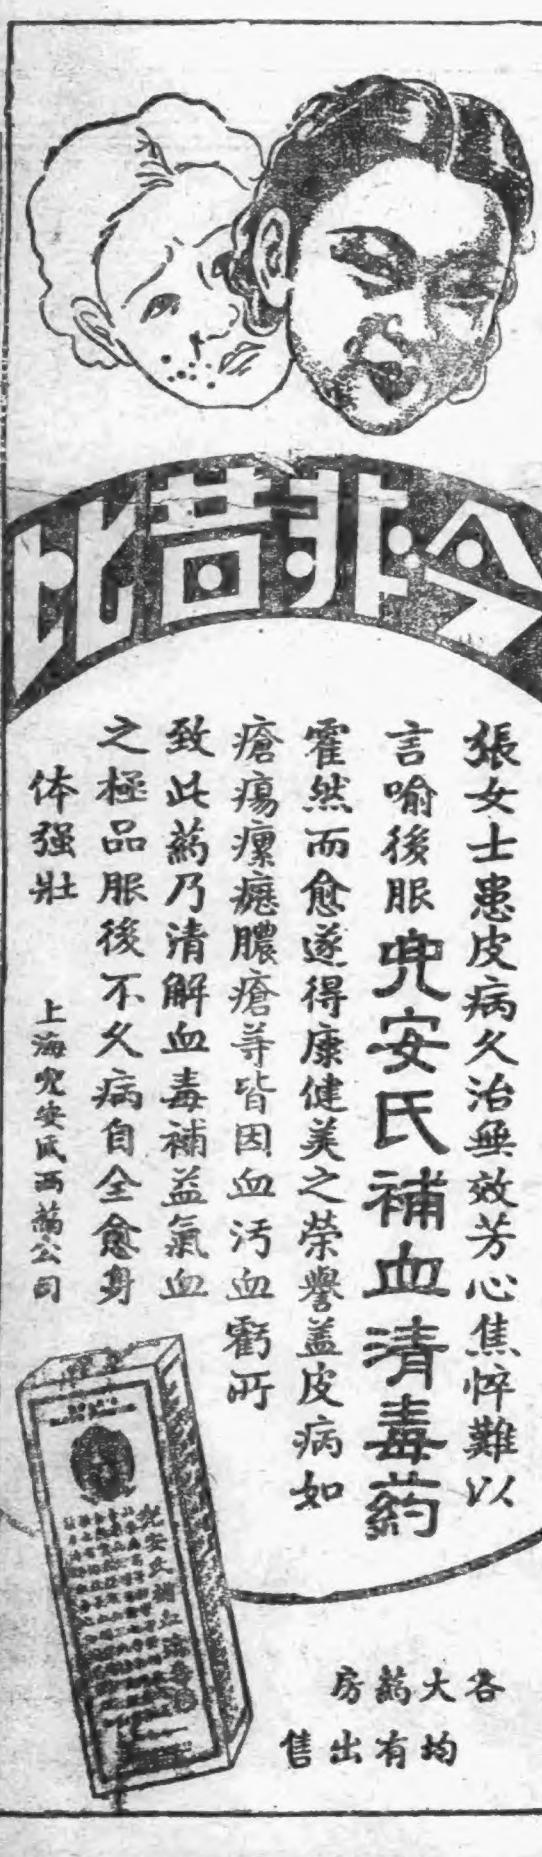 今非昔比
張女士患皮病久治無效芳心焦悴難以
言喻後服兜安氏補血清毒葯
霍然而愈遂得康健美之荣譽盖皮病如
瘡瘍瘰癧膿瘡等皆因血污血虧所
致此葯乃清解血毒補益氣血
之極品服後不久病自全愈身
体强壯
上海兜安氏西葯公司
兜安氏補血清毒
各大葯房
均有出售